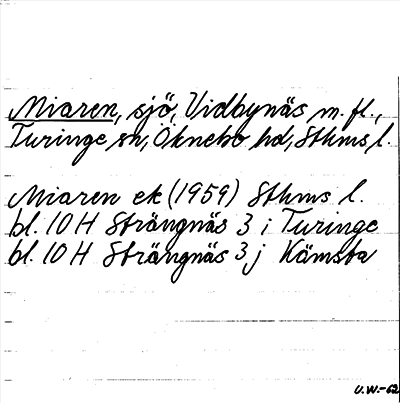 Miaren, sjö, Vidbynäs m. fl.,
Turinge sn, Öknebo hd, Sthms l.
Miaren ek (1959) Sthms l.
bl. 10 H Strängnäs 3 i Turinge
bl. 10 H Strängnäs 3 j Kämsta
U.W.-62